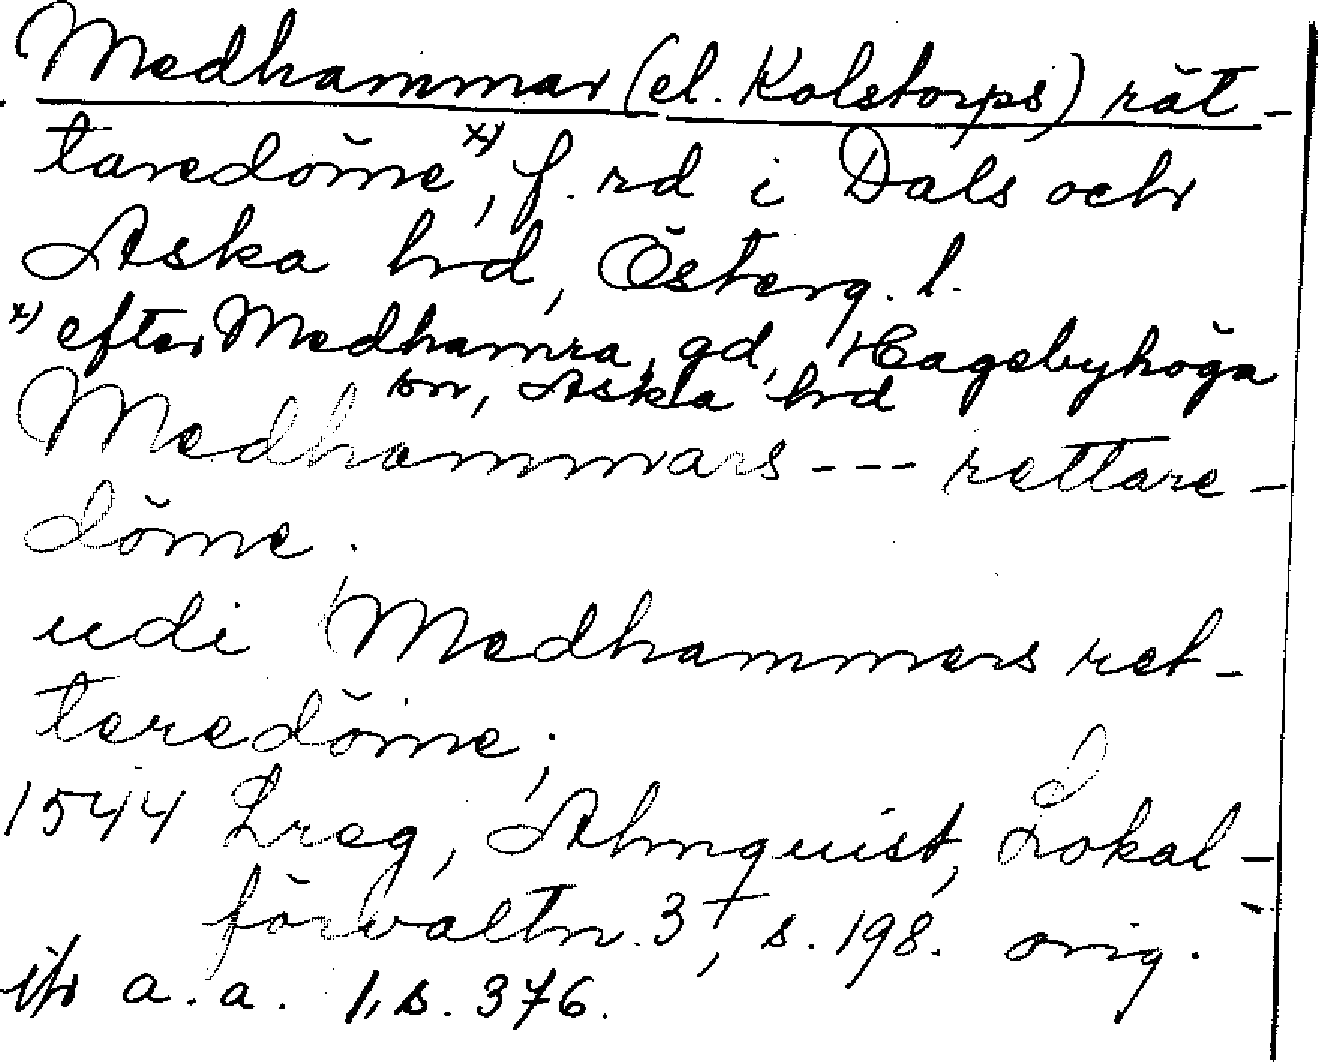 Medhammar (el. Kolstorps) rät-
taredöme x), f. rd i Dals och
Aska hrd, Österg. l.
x) efter Medhamra, gd, Hagebyhöga
sn, Aska hrd
Medhammars --- rettare-
döme.
udi Medhammers ret-
teredöme;
1544 Lreg, Almquist, Lokal-
förvaltn. 3, s. 198. orig.
jfr a.a. 1, s. 376.